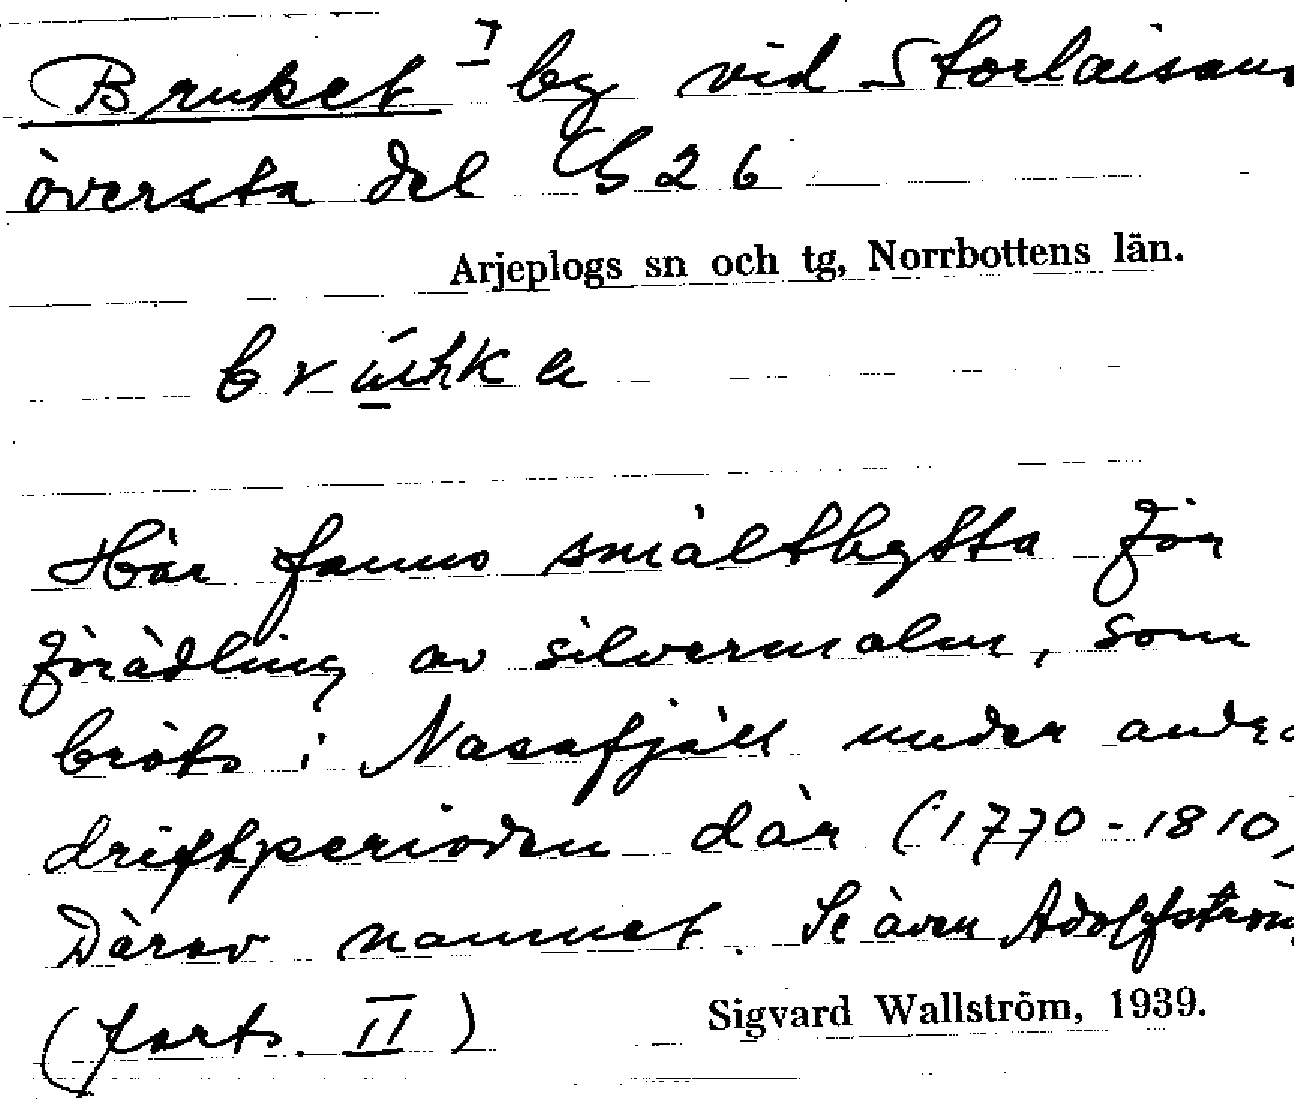 Bruket I by vid Storlaisans
översta del G 26
Arjeplogs sn och tg, Norrbottens län.
Här fanns smälthytta för
förädling av silvermalm, som
bröts i Nasafjäll under andra
driftperioden där (1770-1810)
Därav namnet. Se även Adolfström
(forts. II)
Sigvard Wallström, 1939.